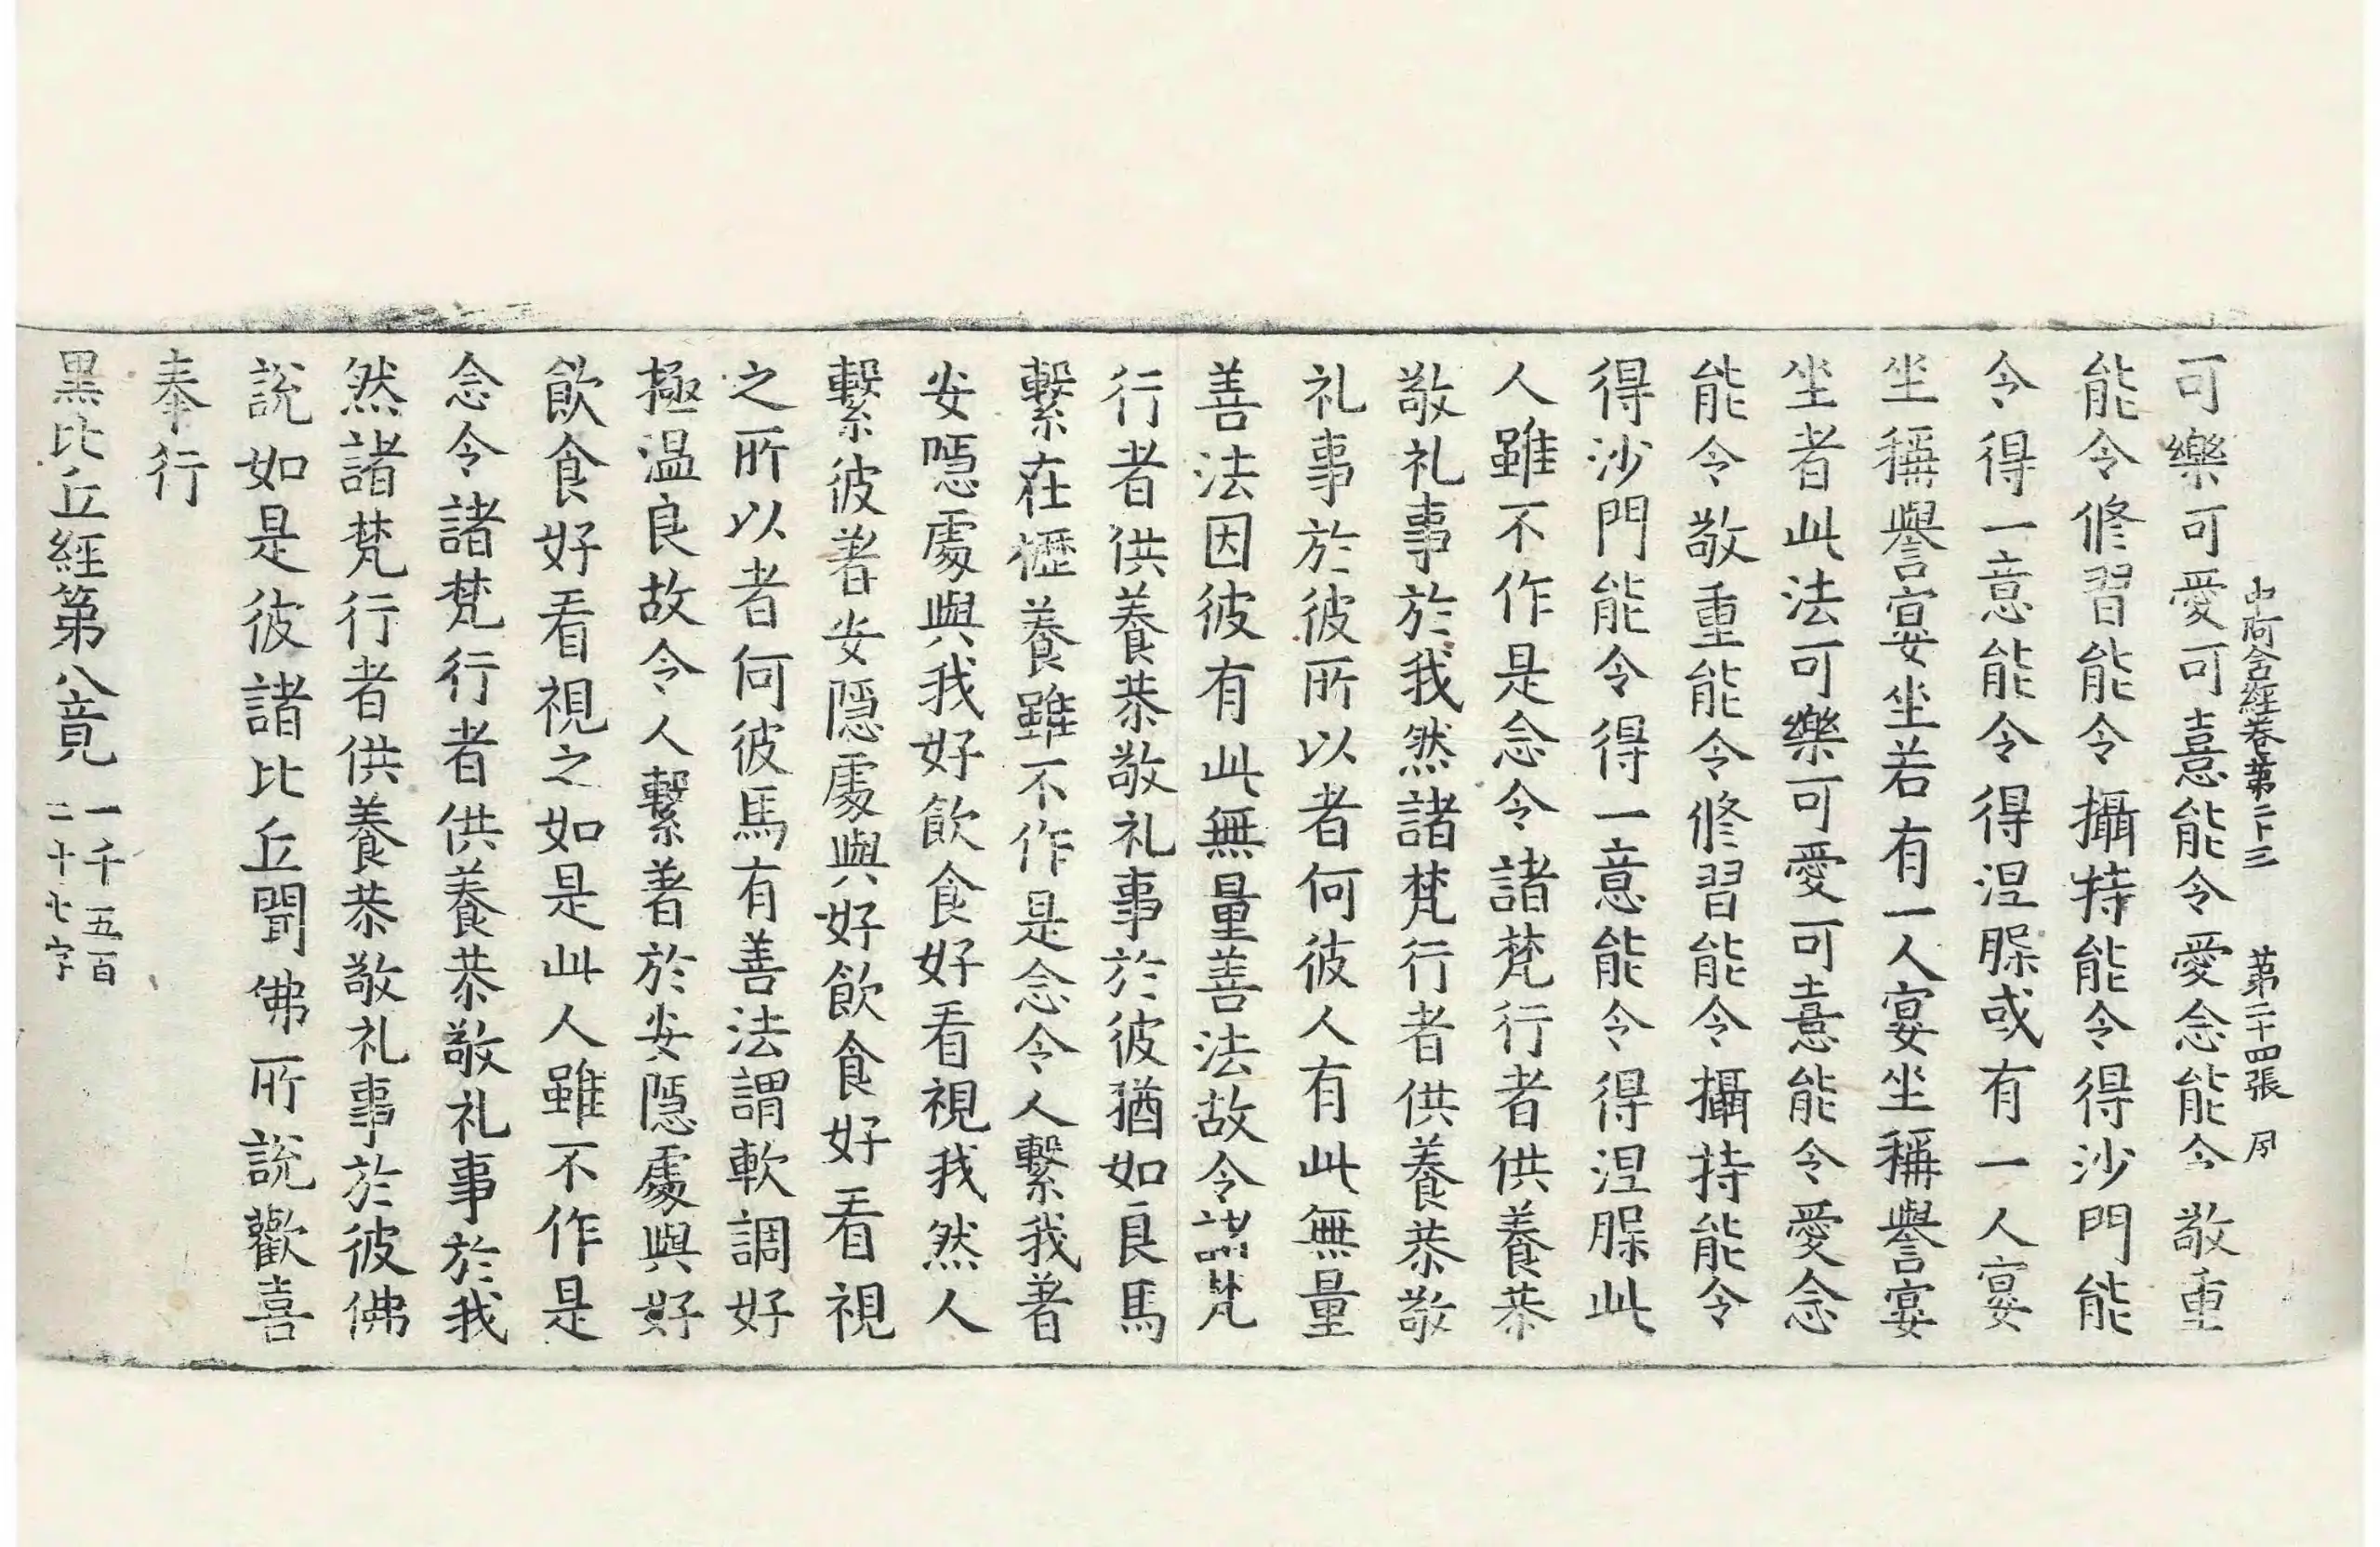 中阿含經卷第二十三 第二十四張 夙
可樂可愛可憙能令愛念能令敬重
能令修習能令攝持能令得沙門能
令得一意能令得涅槃或有一人宴
坐稱譽宴坐若有一人宴坐稱譽宴
坐者此法可樂可愛可憙能令愛念
能令敬重能令修習能令攝持能令
得沙門能令得一意能令得涅槃此
人雖不作是念令諸梵行者供養恭
敬礼事於我然諸梵行者供養恭敬
礼事於彼所以者何彼人有此無量
善法因彼有此無量善法故令諸梵
行者供養恭敬礼事於彼猶如良馬
繫在櫪養雖不作是念令人繫我著
安隱處與我好飲食好看視我然人
繫彼著安隱處與好飲食好看視
之所以者何彼馬有善法謂軟調好
極温良故令人繫著於安隱處與好
飲食好看視之如是此人雖不作是
念令諸梵行者供養恭敬礼事於我
然諸梵行者供養恭敬礼事於彼佛
說如是彼諸比丘聞佛所說歡喜
奉行
黑比丘經第八竟
一千五百
二十七字